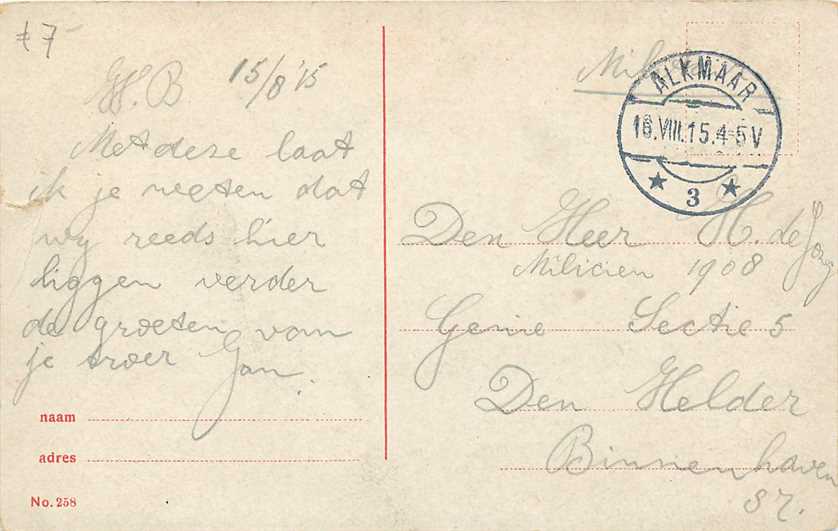 £7-
W.B 15/8 '15
Met deze laat
ik je weeten dat
wy reeds hier
liggen verder
de groeten van
je broer Jan.
naam
adres
No. 258
ALKMAAR
16.VIII.15.4-5V
3
Den Heer H. de Jong
Milicien 1908
Genie Sectie 5
Den Helder
Binnenhaven
87.